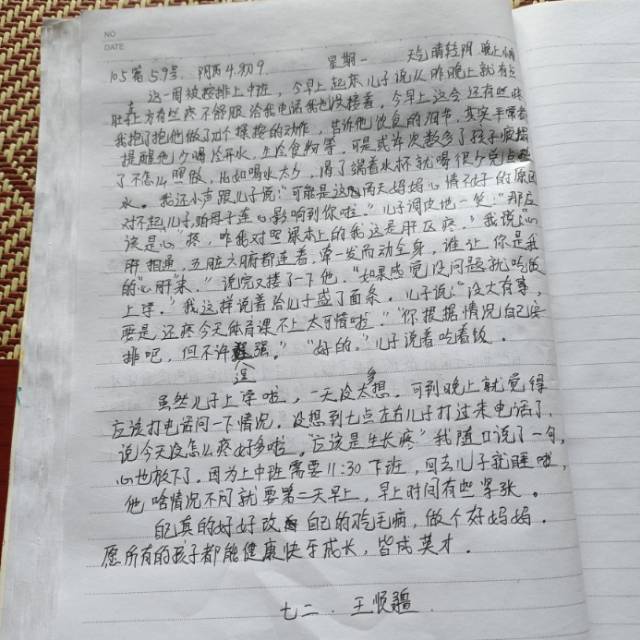 NO
DATE
105第59号 阴历4.初9 星期一 延庆 晴转阴 晚上
这一周被安排上中班,今早上起床儿子说从昨晚上就有些
肚右方有些疼不舒服给我电话我也没接着,今早上这会还有些
我抱了抱他做了几个揉擦的动作,告诉他饮食的细节,其实平常
提醒他少喝冷开水,生冷食物等,可是或许次数多了孩子
了不怎么理般,比如喝水太少,渴了端着水杯就喝很多
水。我还小声跟儿子说:"可能是这两天妈妈心情不好的原因
对不起儿子,咱母子连心影响到你啦。"儿子调皮地一笑:"那应
该是心"疼,咋我对空课本上的我这是肝区疼。我说:"心
肝相通,五脏六腑都连着,牵一发而动全身,谁让你是我
的"心肝"来。"说完又搂了一下他。"如果感觉没问题就吃饭
上学。"我这样说着给儿子盛了面条。儿子说:"没大有事,
要是还疼今天体育课不上太可惜啦。""你根据情况自己安
排吧,但不许逞强。""好的。"儿子说着吃着饭。
虽然儿子上学啦,一天没多想,可到晚上就觉得
应该打电话问一下情况,没想到七点左右儿子打过来电话了,
说今天没怎么疼好多啦。"应该是生长疼"我随口说了一句,
心也放下了。因为上中班需要11:30下班,回去儿子就睡啦,
他啥情况不问就要第二天早上,早上时间有些紧张。
自己真的好好改自己的鸡毛病,做个好妈妈。
愿所有的孩子都能健康快乐成长,皆成英才。
七二 王恒疆